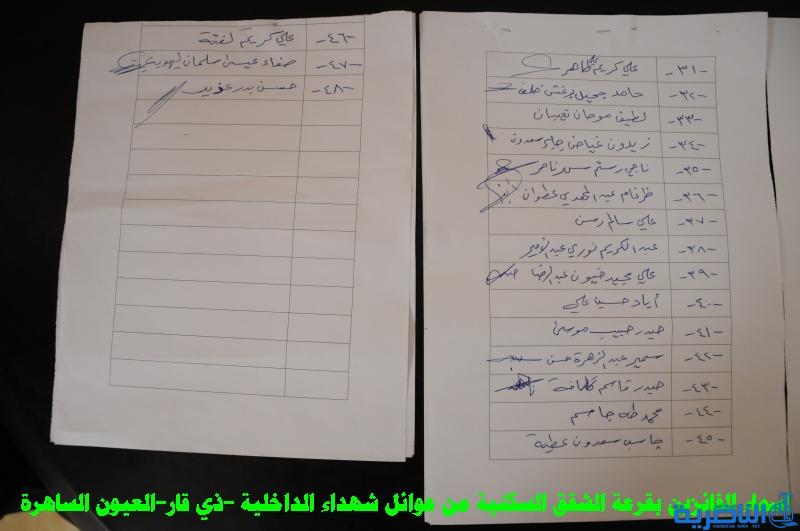 -٣١- علي كريم طاهر
-٣٢- حامد جميل برغش خلف
-٣٣- لطيف موحان تعيبان
-٣٤- زيدون غياض جابر سعدون
-٣٥- ناجي رستم سعد ناصر
-٣٦- ضرغام عبد المهدي عطوان
-٣٧- علي سالم رسن
-٣٨- عبد الكريم نوري عبد الامير
-٣٩- علي مجيد خيون عبد الرضا
-٤٠- أياد حسين علي
-٤١- حيدر حبيب موسى
-٤٢- سمير عبد الزهرة حسن
-٤٣- حيدر قاسم
-٤٤- محمد طه جاسم
-٤٥- جاسب سعدون عطية
-٤٦- علي كريم لفتة
-٤٧- صفاء عيسى سلمان
-٤٨- حسن بدر
اسماء الفائزين بقرعة الشقق السكنية من عوائل شهداء الداخلية -ذي قار-العيون الساهرة
الناصرية